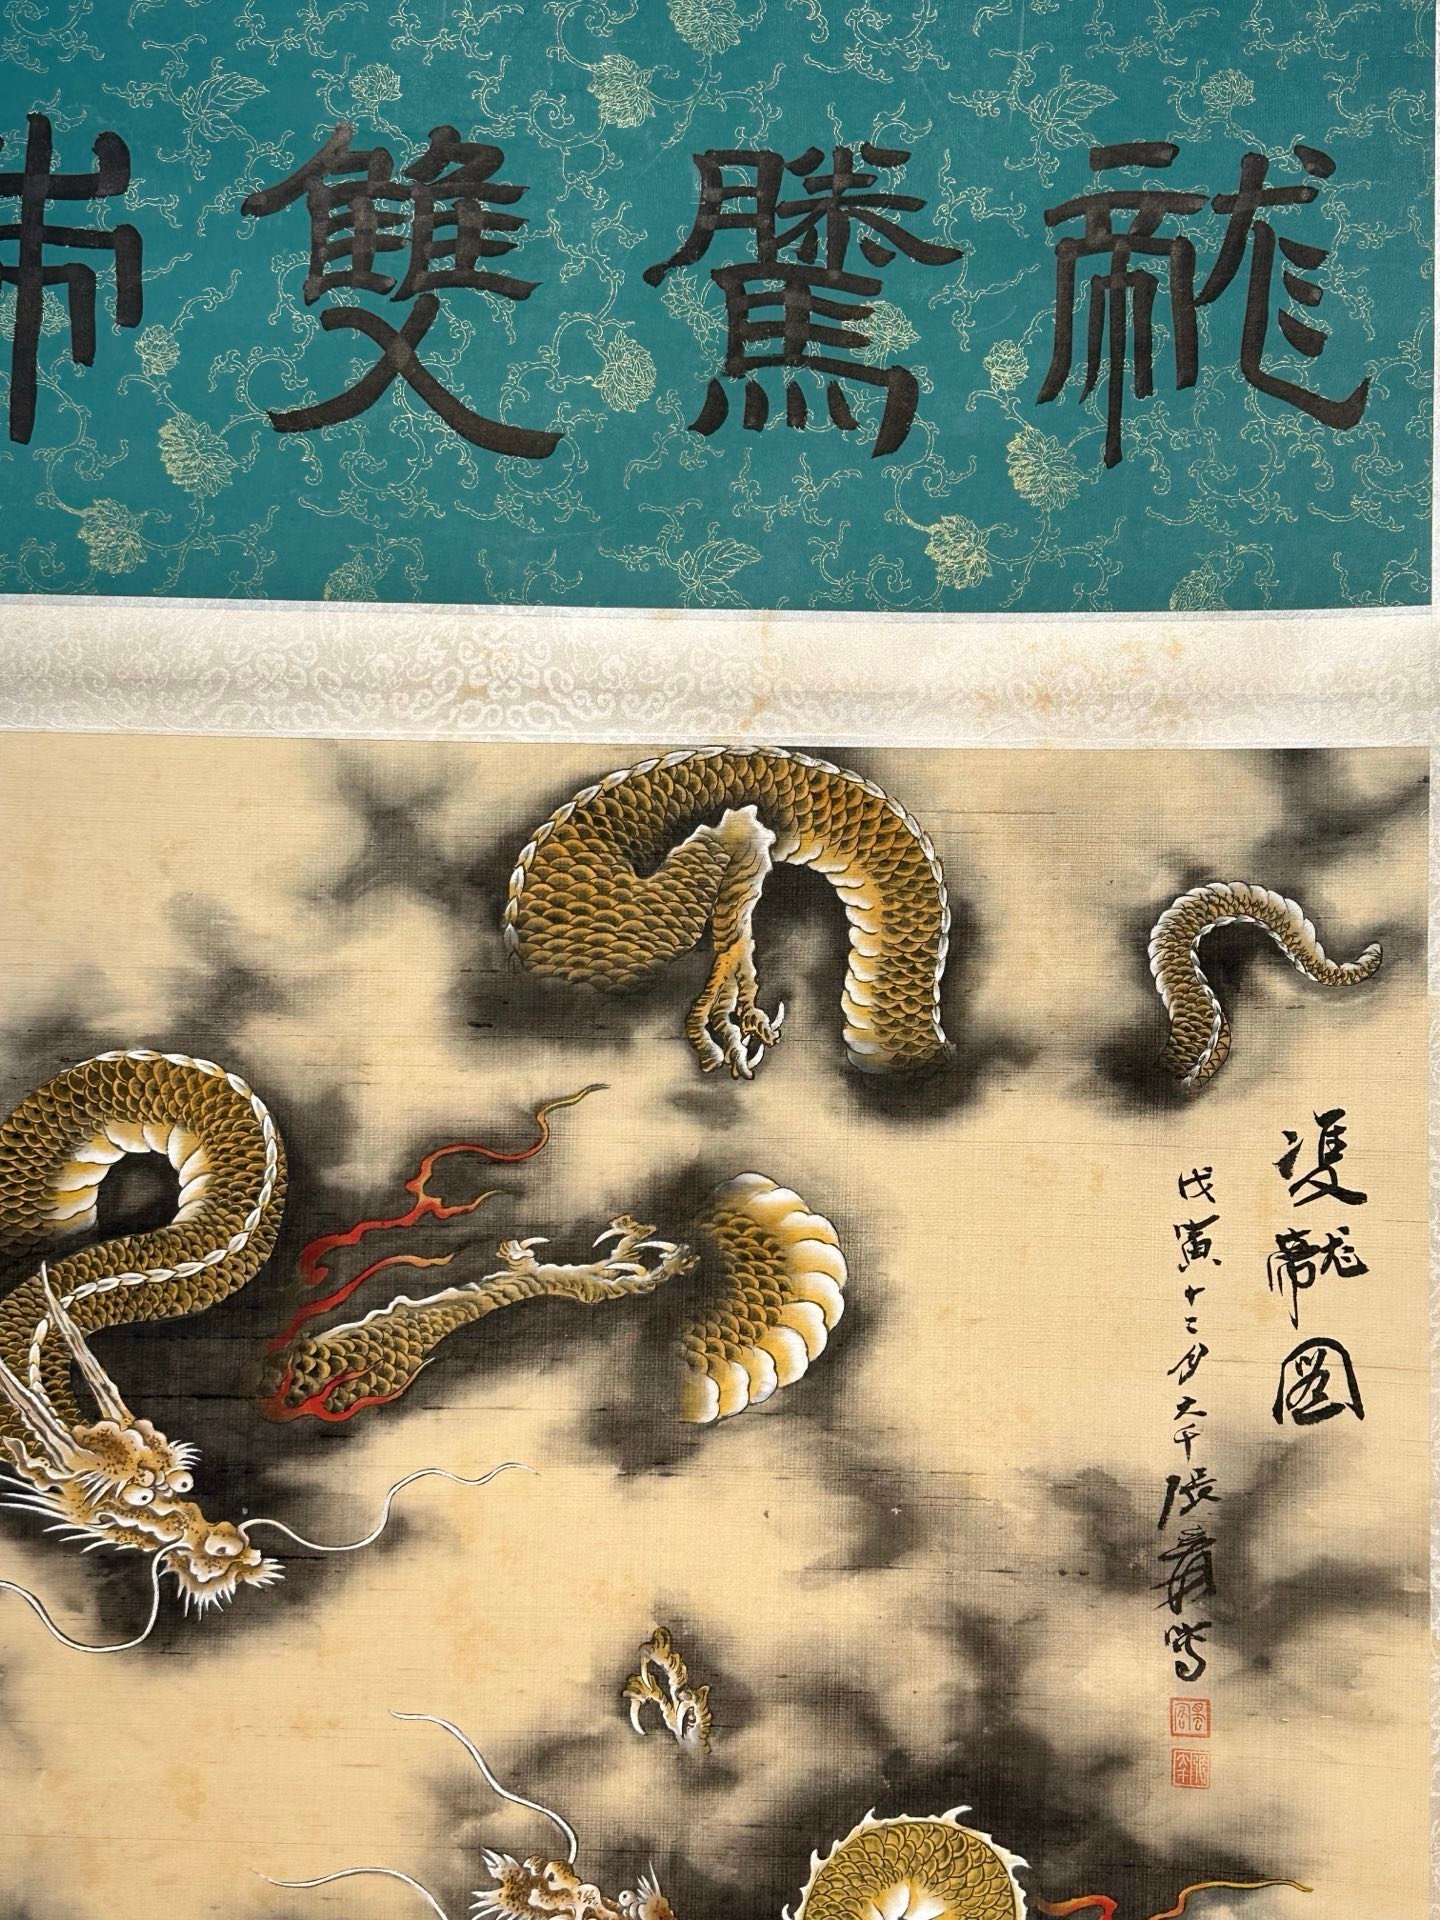 龍騰雙
雙龍圖
戊寅十二月大千張爰寫